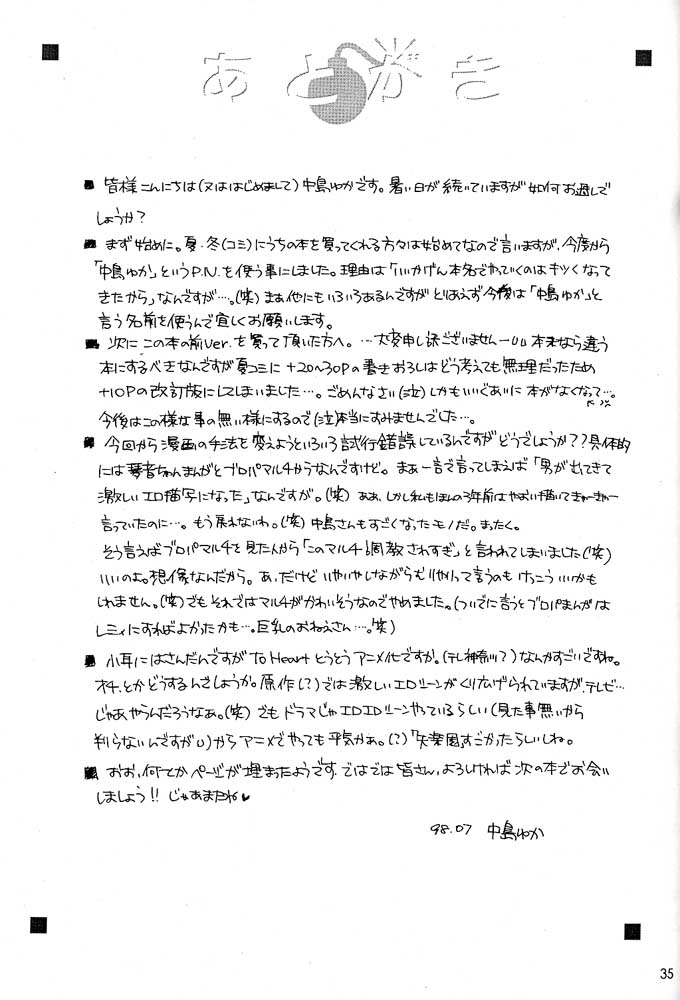 あとがき
■ 皆様こんにちは(又ははじめまして)中島ゆかです。暑い日が続いていますが如何お過しで
しょうか?
■ まず始めに。夏・冬(コミ)にうちの本を買ってくれる方々は始めてなので言いますが、今度から
「中島ゆか」というP.N.を使う事にしました。理由は「いいかげん本名でやっていくのはキツくなって
きたから」なんですが…。(笑)まぁ他にもいろいろあるんですがとりあえず今後は「中島ゆか」と
言う名前を使うんで宜しくお願いします。
■ 次にこの本の前Ver.を買って頂いた方へ。…大変申し訳ございませんー 本来なら違う
本にするべきなんですが夏コミに+20~30Pの書きおろしはどう考えても無理だったため
+10Pの改訂版にしてしまいました…。ごめんなさい(泣)しかもいいぐあいに本がなくなって…。
今後はこの様な事の無い様にするので(泣)本当にすみませんでした…。
■ 今回から漫画の手法を変えようといろいろ試行錯誤しているんですがどうでしょうか??具体的
には琴音ちゃんまんがとプロパマルチからなんですけど。まぁ一言で言ってしまえば「男が出てきて
激しいエロ描写になった」なんですが。(笑)ああ、しかし私もほんの3年前はやおい描いてきゃーきゃー
言っていたのに…。もう戻れないわ。(笑)中島さんもすごくなったモノだ。まったく。
そう言えばプロパマルチを見た人から「このマルチ調教されすぎ」と言われてしまいました(笑)
いいのよ。想像なんだから。あ、だけどいやいやしながらむりやりって言うのもけっこういいかも
しれません。(笑)でもそれではマルチがかわいそうなのでやめました。(ついでに言うとプロパまんがは
レミィにすればよかったかも…。巨乳のおねえさん…。笑)
■ 小耳にはさんだんですがTo Heartとうとうアニメ化ですか。(テレビ神奈川?)なんかすごいですね。
オチとかどうするんでしょうか。原作(?)では激しいエロシーンがくり広げられていますが、テレビ…
じゃあやらんだろうなぁ。(笑)でもドラマじゃエロエロシーンやっているらしい(見た事無いから
判らないんですが)からアニメでやっても平気かぁ。(?)「失楽園」すごかったらしいしね。
■ おお、何とかページが埋まったようです。ではでは皆さん、よろしければ次の本でお会い
しましょう!!じゃあまたね♥
98.07 中島ゆか
35